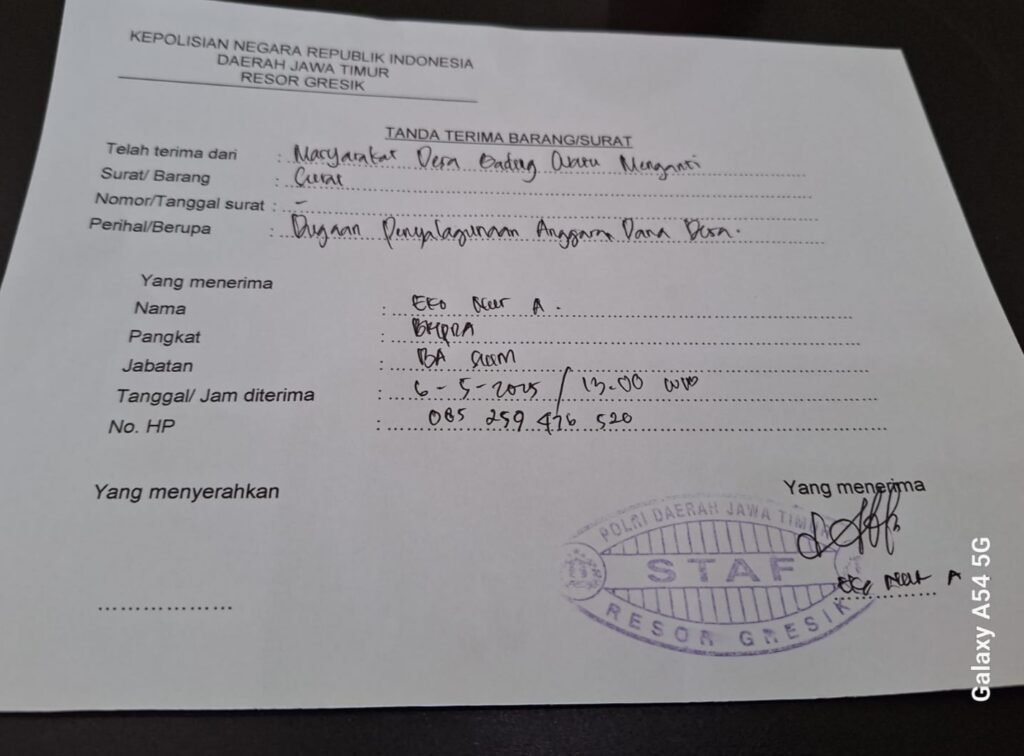 KEPOLISIAN NEGARA REPUBLIK INDONESIA
DAERAH JAWA TIMUR
RESOR GRESIK
TANDA TERIMA BARANG/SURAT
Telah terima dari : Masyarakat Desa Gading Watu Menganti
Surat/ Barang : Surat
Nomor/Tanggal surat : -
Perihal/Berupa : Dugaan Penyalagunaan Anggaran Dana Desa.
Yang menerima
Nama : EKO Nur A.
Pangkat :
Jabatan : BA
Tanggal/ Jam diterima : 6-5-2025 / 13.00 WIB
No. HP : 085 259 476 520
Yang menyerahkan
Yang menerima
POLRI DAERAH JAWA TIMUR
STAF
RESOR GRESIK
Eko Nur A
Galaxy A54 5G